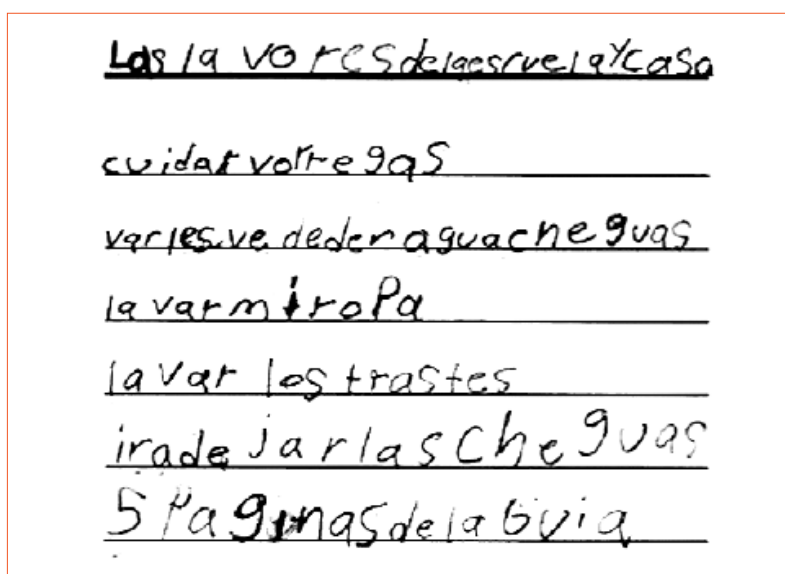 Las la vores delaescuela y casa
cuidar vorregas
varles.ve deder aguacheguas
la var mi roPa
la var los trastes
irade jarlascheguas
5 Paginas de la Guia